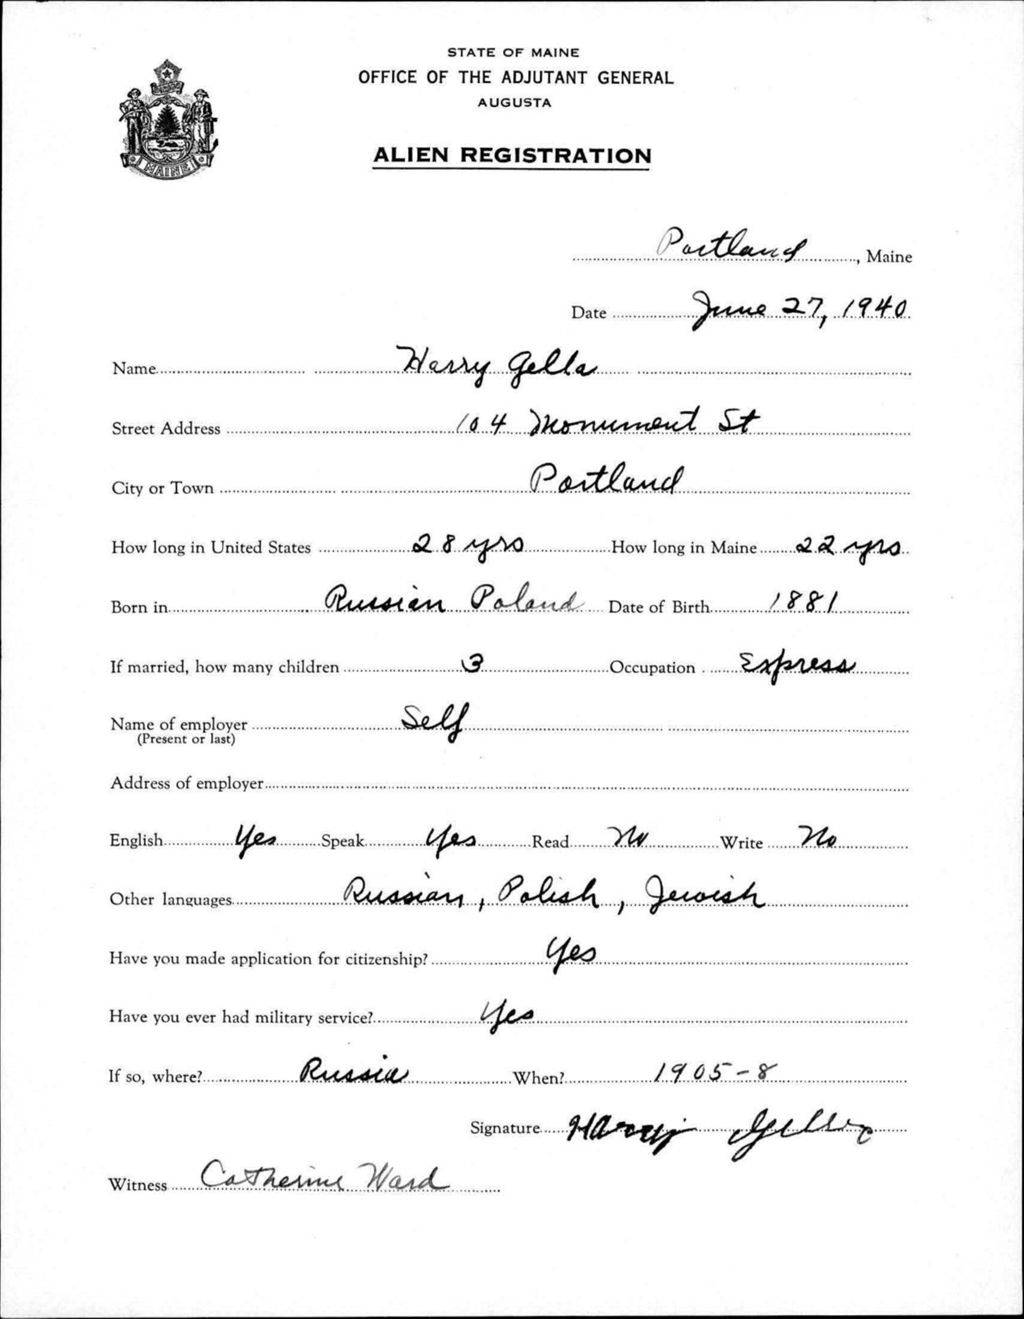 STATE OF MAINE
OFFICE OF THE ADJUTANT GENERAL
AUGUSTA
ALIEN REGISTRATION
MAINE
Portland, Maine
Date June 27, 1940
Name Harry Gella
Street Address 104 Monument St
City or Town Portland
How long in United States 28 yrs How long in Maine 22 yrs
Born in Russian Poland Date of Birth 1881
If married, how many children 3 Occupation Express
Name of employer Self
(Present or last)
Address of employer
English Yes Speak Yes Read No Write No
Other languages Russian, Polish, Jewish
Have you made application for citizenship? Yes
Have you ever had military service? Yes
If so, where? Russia When? 1905-8
Signature Harry
Witness Catherine Ward